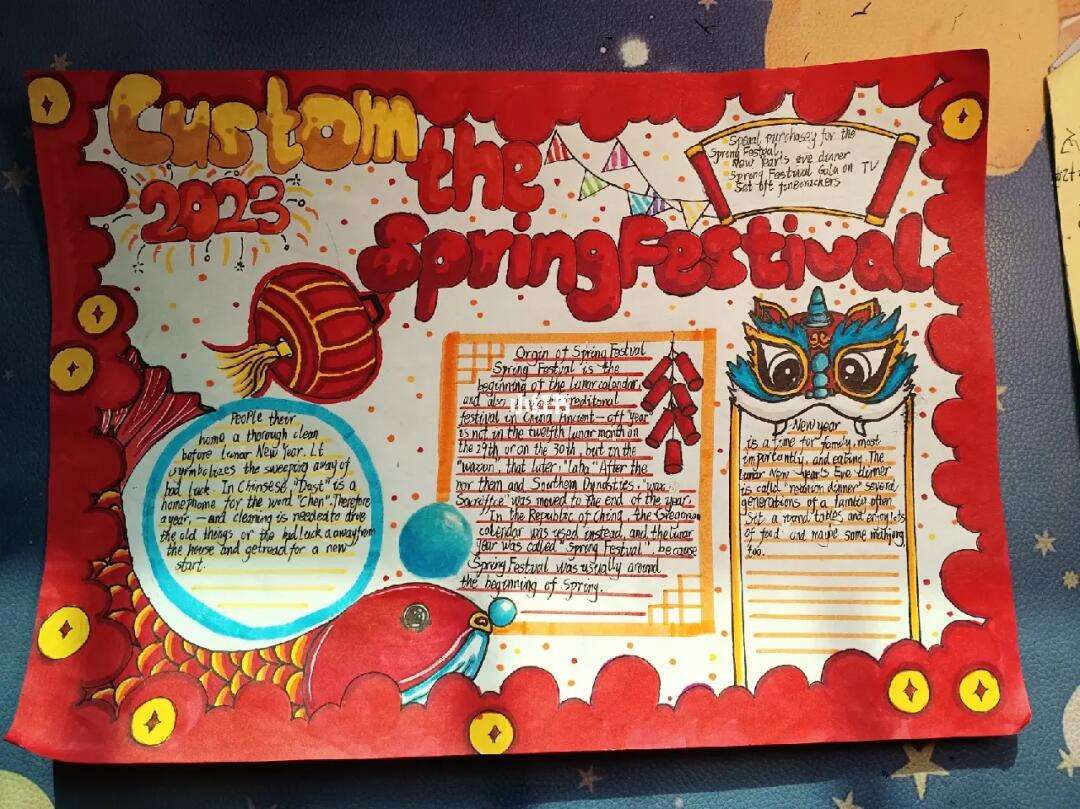 Custom
2023
the
Spring Festival
Special purchases for the
Spring Festval
New Years eve dinner
Spring Festival Gala on TV
Set off firecrackers
People their
home a thorough clean
before Lunar New Year. It
the sweeping away of
bad luck. In Chinsese, "Dast" is a
homephome for the word "Chen". Therefore
a year, — and cleaning is needed to drive
the old things or the bad luck a away from
the house and getread for a new
start.
Orgin of Spring Festval
Spring Festval is the
beginning of the lunar calendar,
and also
festival in China Ancient — off year
is not in the twelfth lunar month on
the 29th or on the 30th, but in the
that later, "laba" After the
nor them and Southern Dynasties,
Sacrifice was moved to the end of the year.
In the Republic of China, the Gregorian
calendar was used instead, and the lunar
year was called "spring Festival" because
Spring Festival was usually around
the beginning of Spring.
小红书
New year
is a time for family, most
importantly, and eating. The
lunar New Year's Eve dinner
is called "reunion dinner" several
generations of a famile often
Set a round tables and
of food and maybe some mahjong,
too.